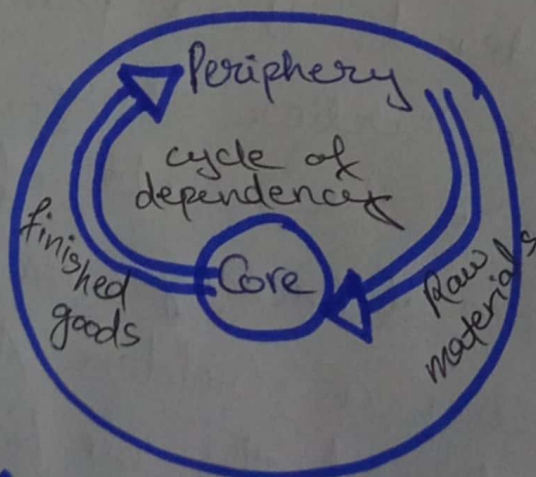 Periphery
cycle of
dependency
Core
finished
goods
Raw
materials